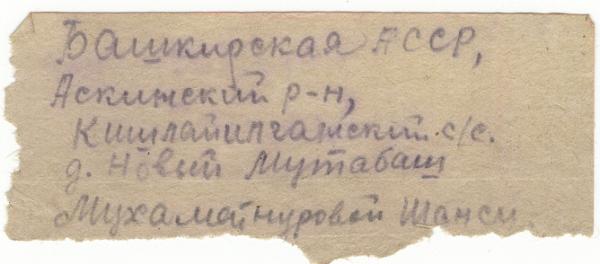 Башкирская АССР,
Аскинский р-н,
Кишлаилгажский с/с.
д. Новый Мутабаш
Мухаметнуровой Шамси